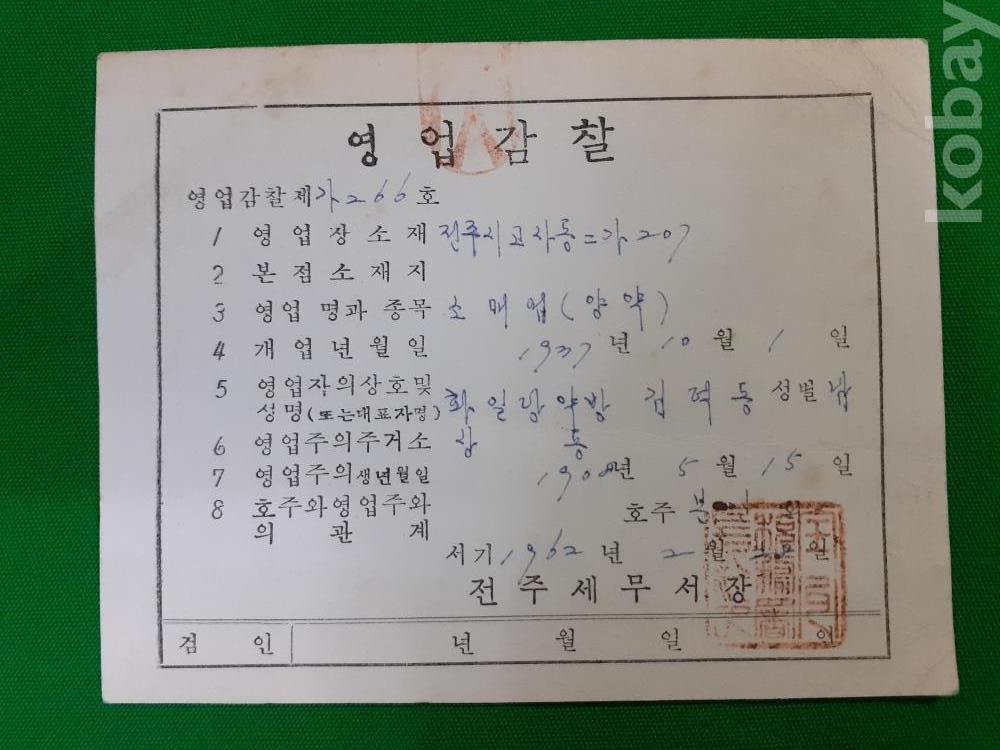 kobay
영업감찰
영업감찰제가266호
1 영업장소재 전주시고사동二가207
2 본점소재지
3 영업명과종목 소매업(양약)
4 개업년월일 1937년 10월 1일
5 영업자의상호및 화일당약방 김덕동 성별 남
성명(또는대표자명)
6 영업주의주거소 상동
7 영업주의생년월일 1900년 5월 15일
8 호주와영업주와 호주 본인의
의관계
서기 1962년 2월 일
전주세무서장
검인 년 월 일 인